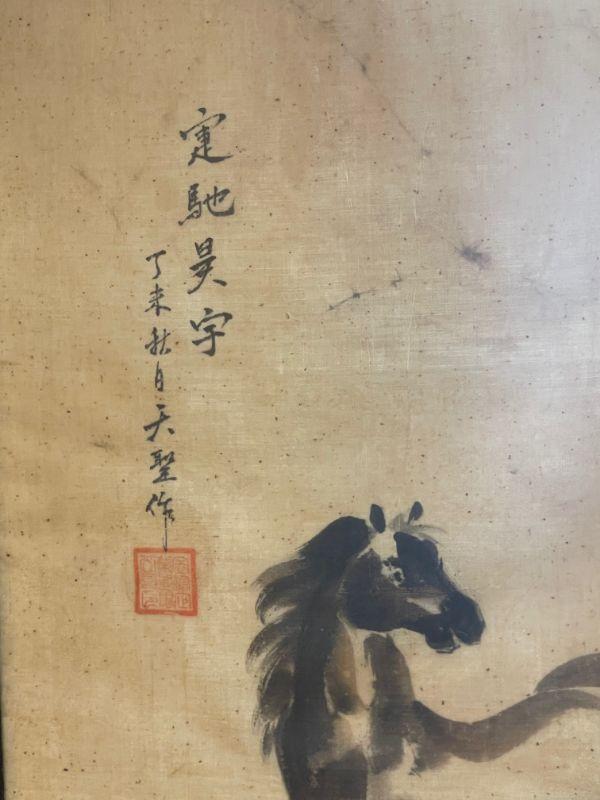 馳昊宇
丁未秋日天聖作